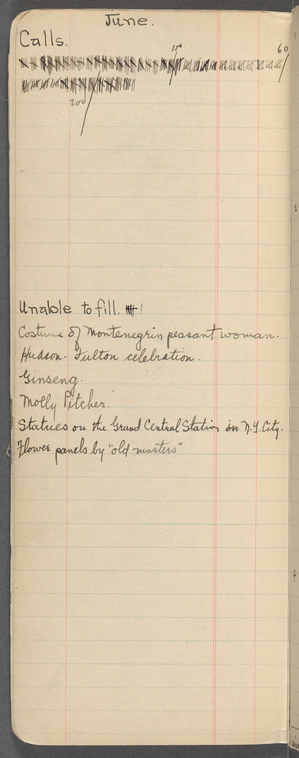 June.
Calls.
200
Unable to fill.
Costume of Montenegrin peasant woman.
Hudson-Fulton celebration.
Ginseng.
Molly Pitcher.
Statues on the Grand Central Station in N.Y. City.
Flower panels by "old masters"